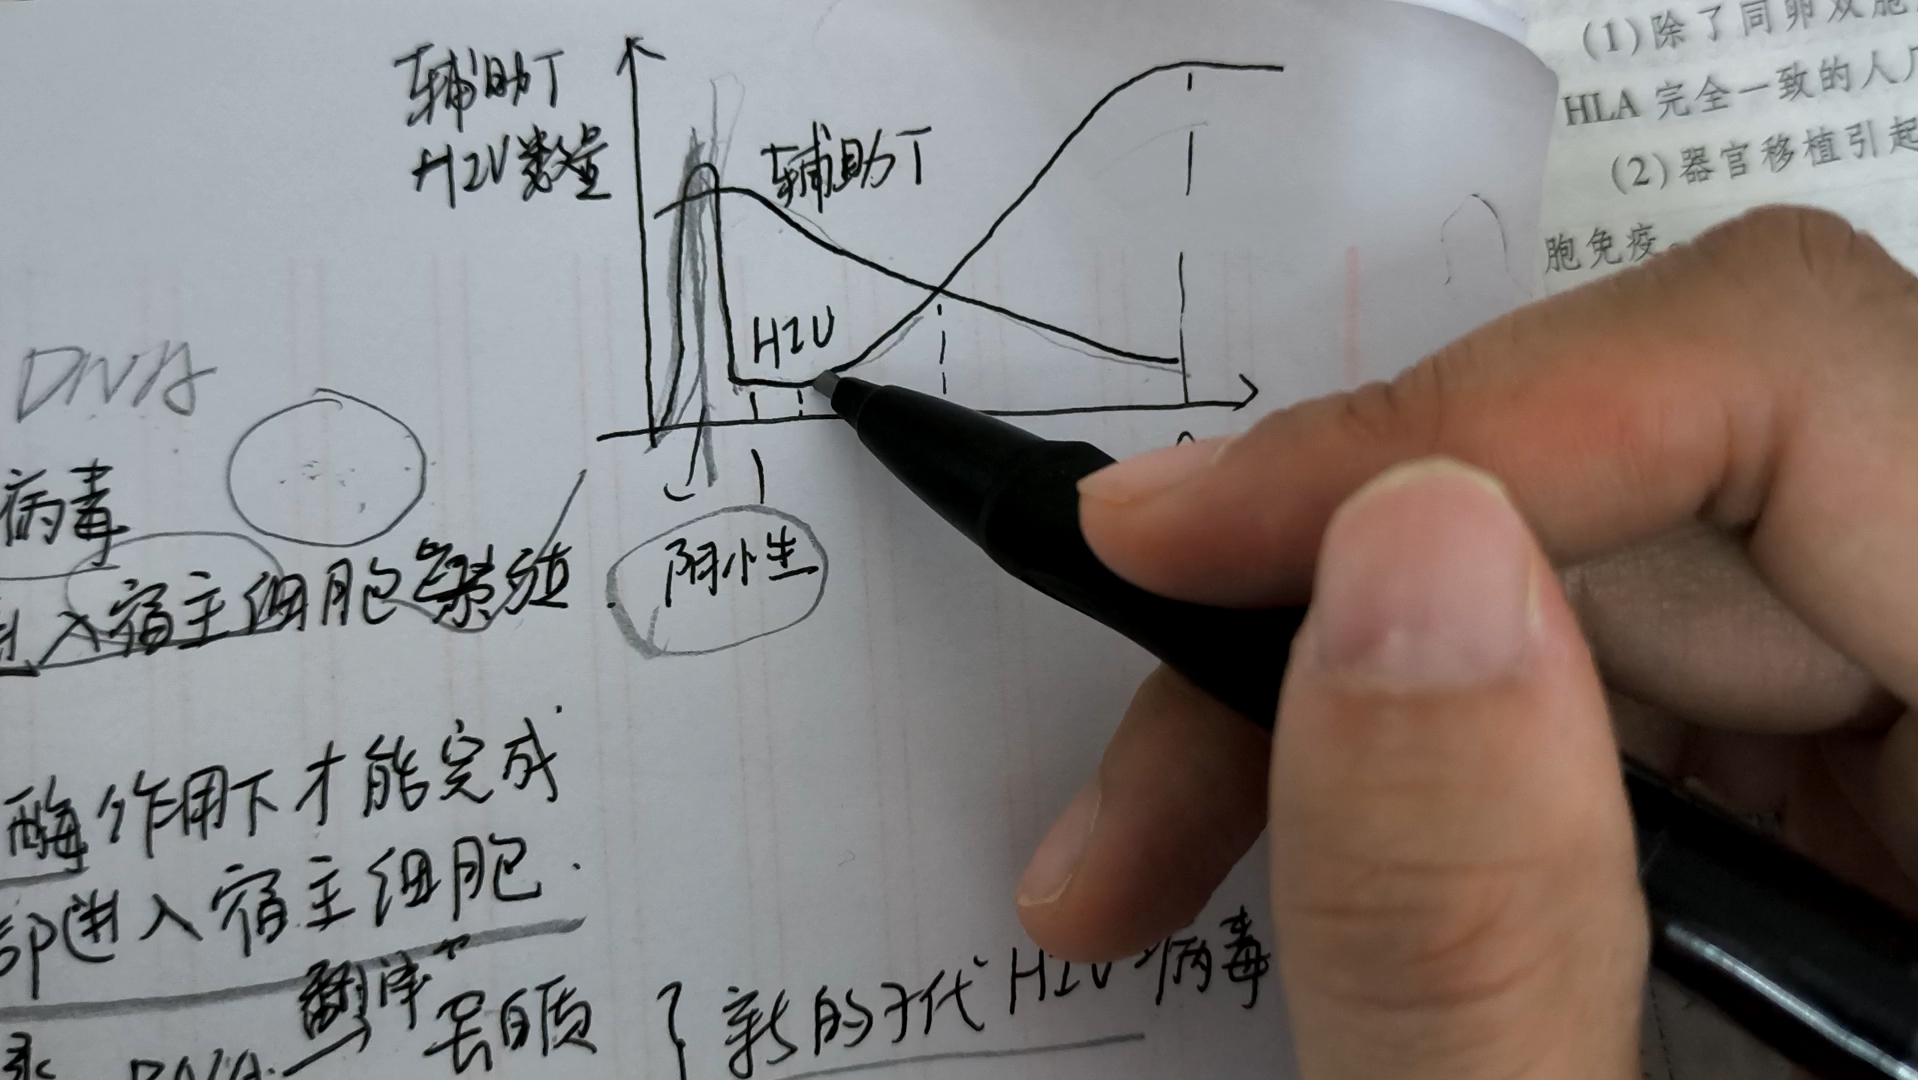 辅助T
HIV数量
辅助T
HIV
DNA
阴性
病毒
入宿主细胞繁殖.
酶作用下才能完成
部进入宿主细胞.
翻译
RNA
蛋白质
新的子代HIV病毒
(1)除了同卵双胞
HLA完全一致的人几
(2)器官移植引起
胞免疫。